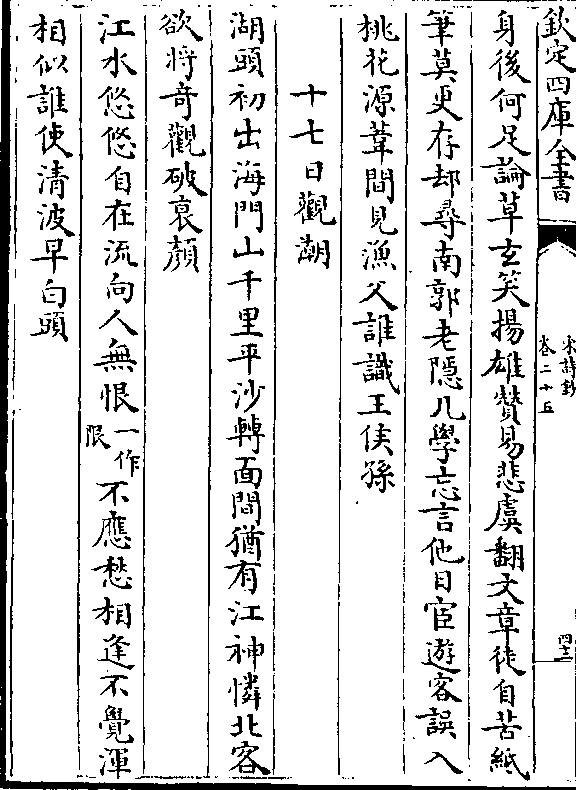 欽定四庫全書
宋詩鈔
卷二十五
四三
身後何足論草玄笑揚雄贊易悲虞翻文章徒自苦紙
筆莫更存却尋南郭老隱几學忘言他日宦遊客誤入
桃花源葦間見漁父誰識王侯孫
十七日觀潮
湖頭初出海門山千里平沙轉面間猶有江神憐北客
欲將奇觀破衰顏
江水悠悠自在流向人無恨一作限不應愁相逢不覺渾
相似誰使清波早白頭